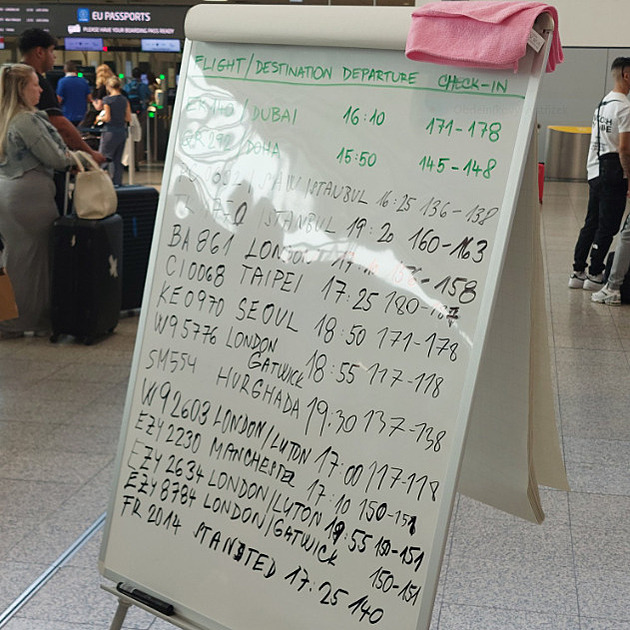 EU PASSPORTS
PLEASE HAVE YOUR BOARDING PASS READY
FLIGHT/DESTINATION DEPARTURE CHECK-IN
EK140/DUBAI 16:10 171-178
QR292/DOHA 15:50 145-148
ISTANBUL 16:25 136-138
ISTANBUL 19:20 160-163
BA861 LONDON 158
CI0068 TAIPEI 17:25 180-187
KE0970 SEOUL 18:50 171-178
W95776 LONDON GATWICK 18:55 117-118
SM554 HURGHADA 19:30 137-138
W92603 LONDON/LUTON 17:00 117-118
EZY2230 MANCHESTER 17:10 150-151
EZY2634 LONDON/LUTON 19:55 150-151
EZY8784 LONDON/GATWICK 150-151
FR2014 STANSTED 17:25 140